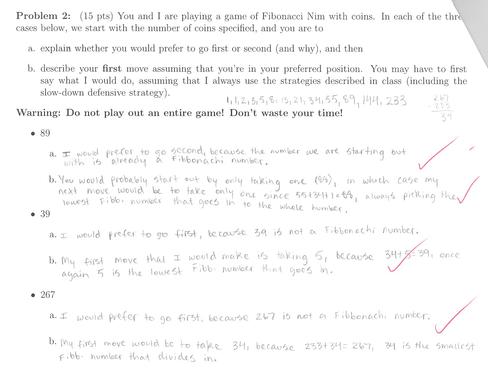 Problem 2: (15 pts) You and I are playing a game of Fibonacci Nim with coins. In each of the thre
cases below, we start with the number of coins specified, and you are to
a. explain whether you would prefer to go first or second (and why), and then
b. describe your first move assuming that you're in your preferred position. You may have to first
say what I would do, assuming that I always use the strategies described in class (including the
slow-down defensive strategy).
1,1,2,3,5,8,13,21,34,55,89,144,233
267
233
34
Warning: Do not play out an entire game! Don't waste your time!
• 89
a. I would prefer to go second, because the number we are starting out
with is already a Fibbonachi number.
b. You would probably start out by only taking one (88), in which case my
next move would be to take only one since 55+34+1=88, always picking the
lowest Fibb. number that goes in to the whole number.
• 39
a. I would prefer to go first, because 39 is not a Fibbonachi number.
b. My first move that I would make is taking 5, because 34+5=39, once
again 5 is the lowest Fibb. number that goes in.
• 267
a. I would prefer to go first, because 267 is not a Fibbonachi number.
b. My first move would be to take 34, because 233+34=267, 34 is the smallest
Fibb. number that divides in.